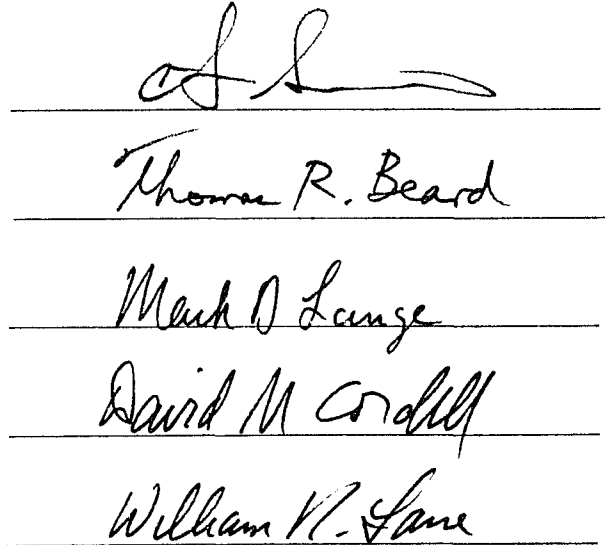 Thomas R. Beard
Mark D Lange
David M Cordell
William R. Lane